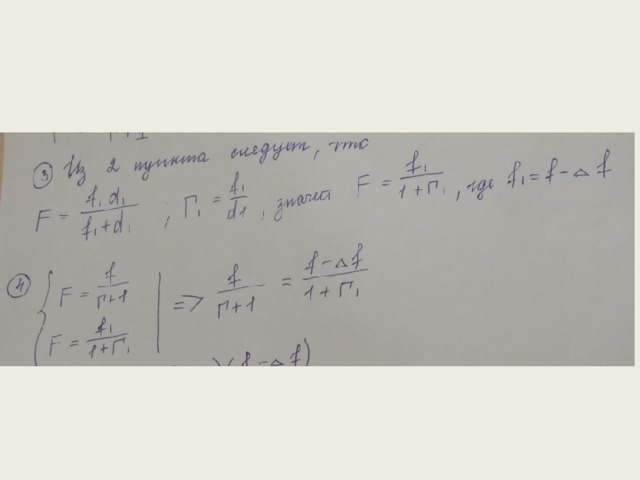 ③ Из 2 пункта следует, что
F = f₁d₁/(f₁+d₁) ; Г₁ = f₁/d₁, значит F = f₁/(1+Г₁), где f₁ = f - Δf
④ { F = f/(Г+1) | => f/(Г+1) = (f - Δf)/(1+Г₁)
F = f₁/(1+Г₁)
)(f - Δf)